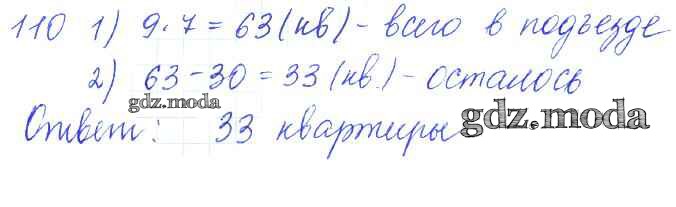 110 1) 9·7 = 63 (кв) - всего в подъезде
2) 63 - 30 = 33 (кв.) - осталось
gdz.moda
Ответ: 33 квартиры
gdz.moda